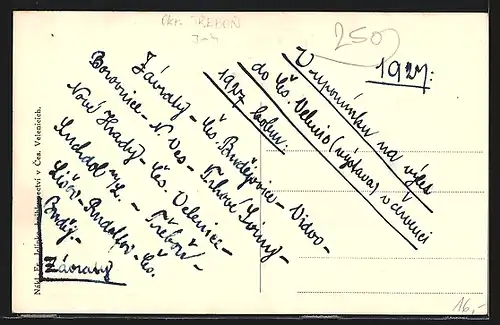 Okr. TŘEBOŇ
250
1927:
V upomínku na výlet
do Čes. Velenic (výstava) v červenci
1927 kolem:
Závraty - Čes. Budějovice -
Borovnice - N. Ves - Trhové Sviny -
Nové Hrady - Čes. Velenice -
Suchdol n/L. - Třeboň -
Lišov - Rudolfov - Čes.
Buděj. -
Závraty
Nákl. Fr. knihkupectví v Čes. Velenicích.
16,-